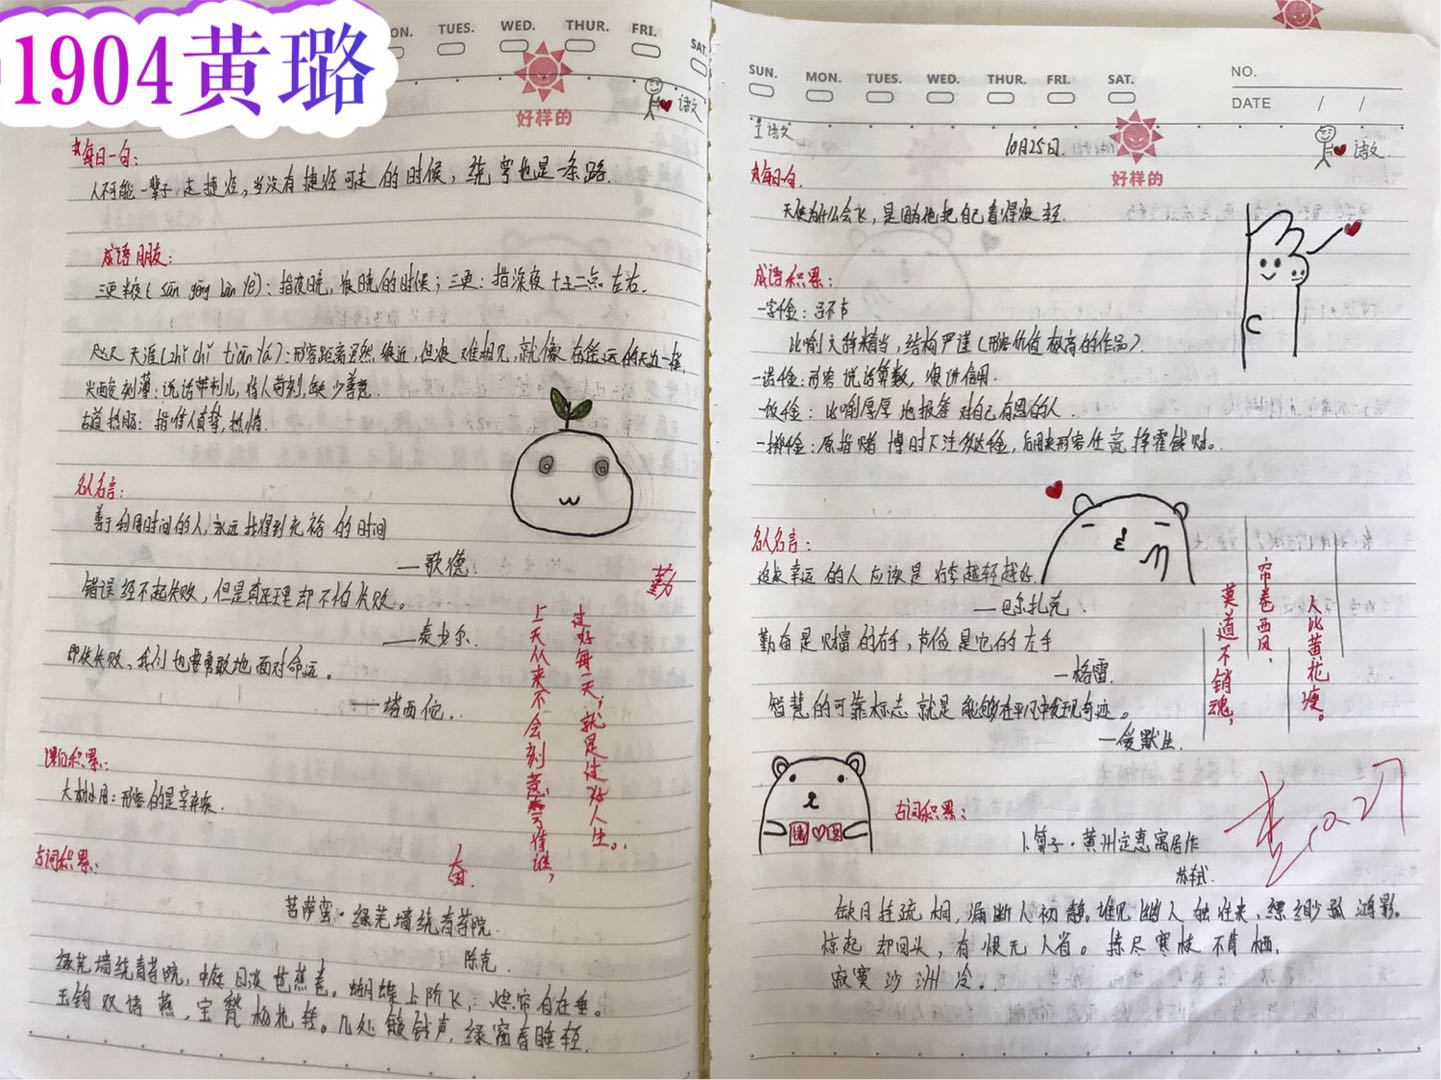 1904黄璐
MON. TUES. WED. THUR. FRI. SAT.
好样的
语文
每日一句:
人不可能一辈子走捷径,当没有捷径可走的时候,绕弯也是一条路.
成语朋友:
三更半夜(sān gēng bàn yè):指夜晚,很晚的时候;三更:指深夜十二点左右.
咫尺天涯(zhǐ chǐ tiān yá):形容距离虽然很近,但很难相见,就像在遥远的天边一样
尖酸刻薄:说话带刺儿,待人苛刻,缺少善意.
古道热肠:指待人真挚,热情.
名人名言:
善于利用时间的人,永远找得到充裕的时间
—歌德.
错误经不起失败,但是真正理却不怕失败。
—泰戈尔.
即使失败,我们也要勇敢地面对命运。
—塔西佗.
勤
过好每一天,就是过好人生。
上天从来不会刻意亏待谁,
奋.
课内积累:
大材小用:形容的是辛弃疾.
古词积累:
菩萨蛮·绿芜墙绕青苔院
陈克.
绿芜墙绕青苔院,中庭日淡芭蕉卷。蝴蝶上阶飞,烘帘自在垂。
玉钩双语燕,宝甃杨花转。几处簸钱声,绿窗春睡轻.
SUN. MON. TUES. WED. THUR. FRI. SAT.
NO.
DATE / /
语文
10月25日.
好样的
语文
每日一句.
天使为什么会飞,是因为他把自己看得很轻.
成语积累:
一字千金:吕不韦
比喻文辞精当,结构严谨(形容价值极高的作品).
一诺千金:形容说话算数,很讲信用.
一饭千金:比喻厚厚地报答对自己有恩的人.
一掷千金:原指赌博时下注多达千金,后用来形容任意挥霍钱财。
名人名言:
追求幸运的人应该是行李越轻越好.
—巴尔扎克.
勤奋是财富的右手,节俭是它的左手
—格雷.
智慧的可靠标志就是能够在平凡中发现奇迹。
—爱默生.
莫道不销魂,
帘卷西风,
人比黄花瘦。
古词积累:
卜算子·黄州定惠寓居作
苏轼.
缺月挂疏桐,漏断人初静。谁见幽人独往来,缥缈孤鸿影。
惊起却回头,有恨无人省。拣尽寒枝不肯栖,
寂寞沙洲冷。